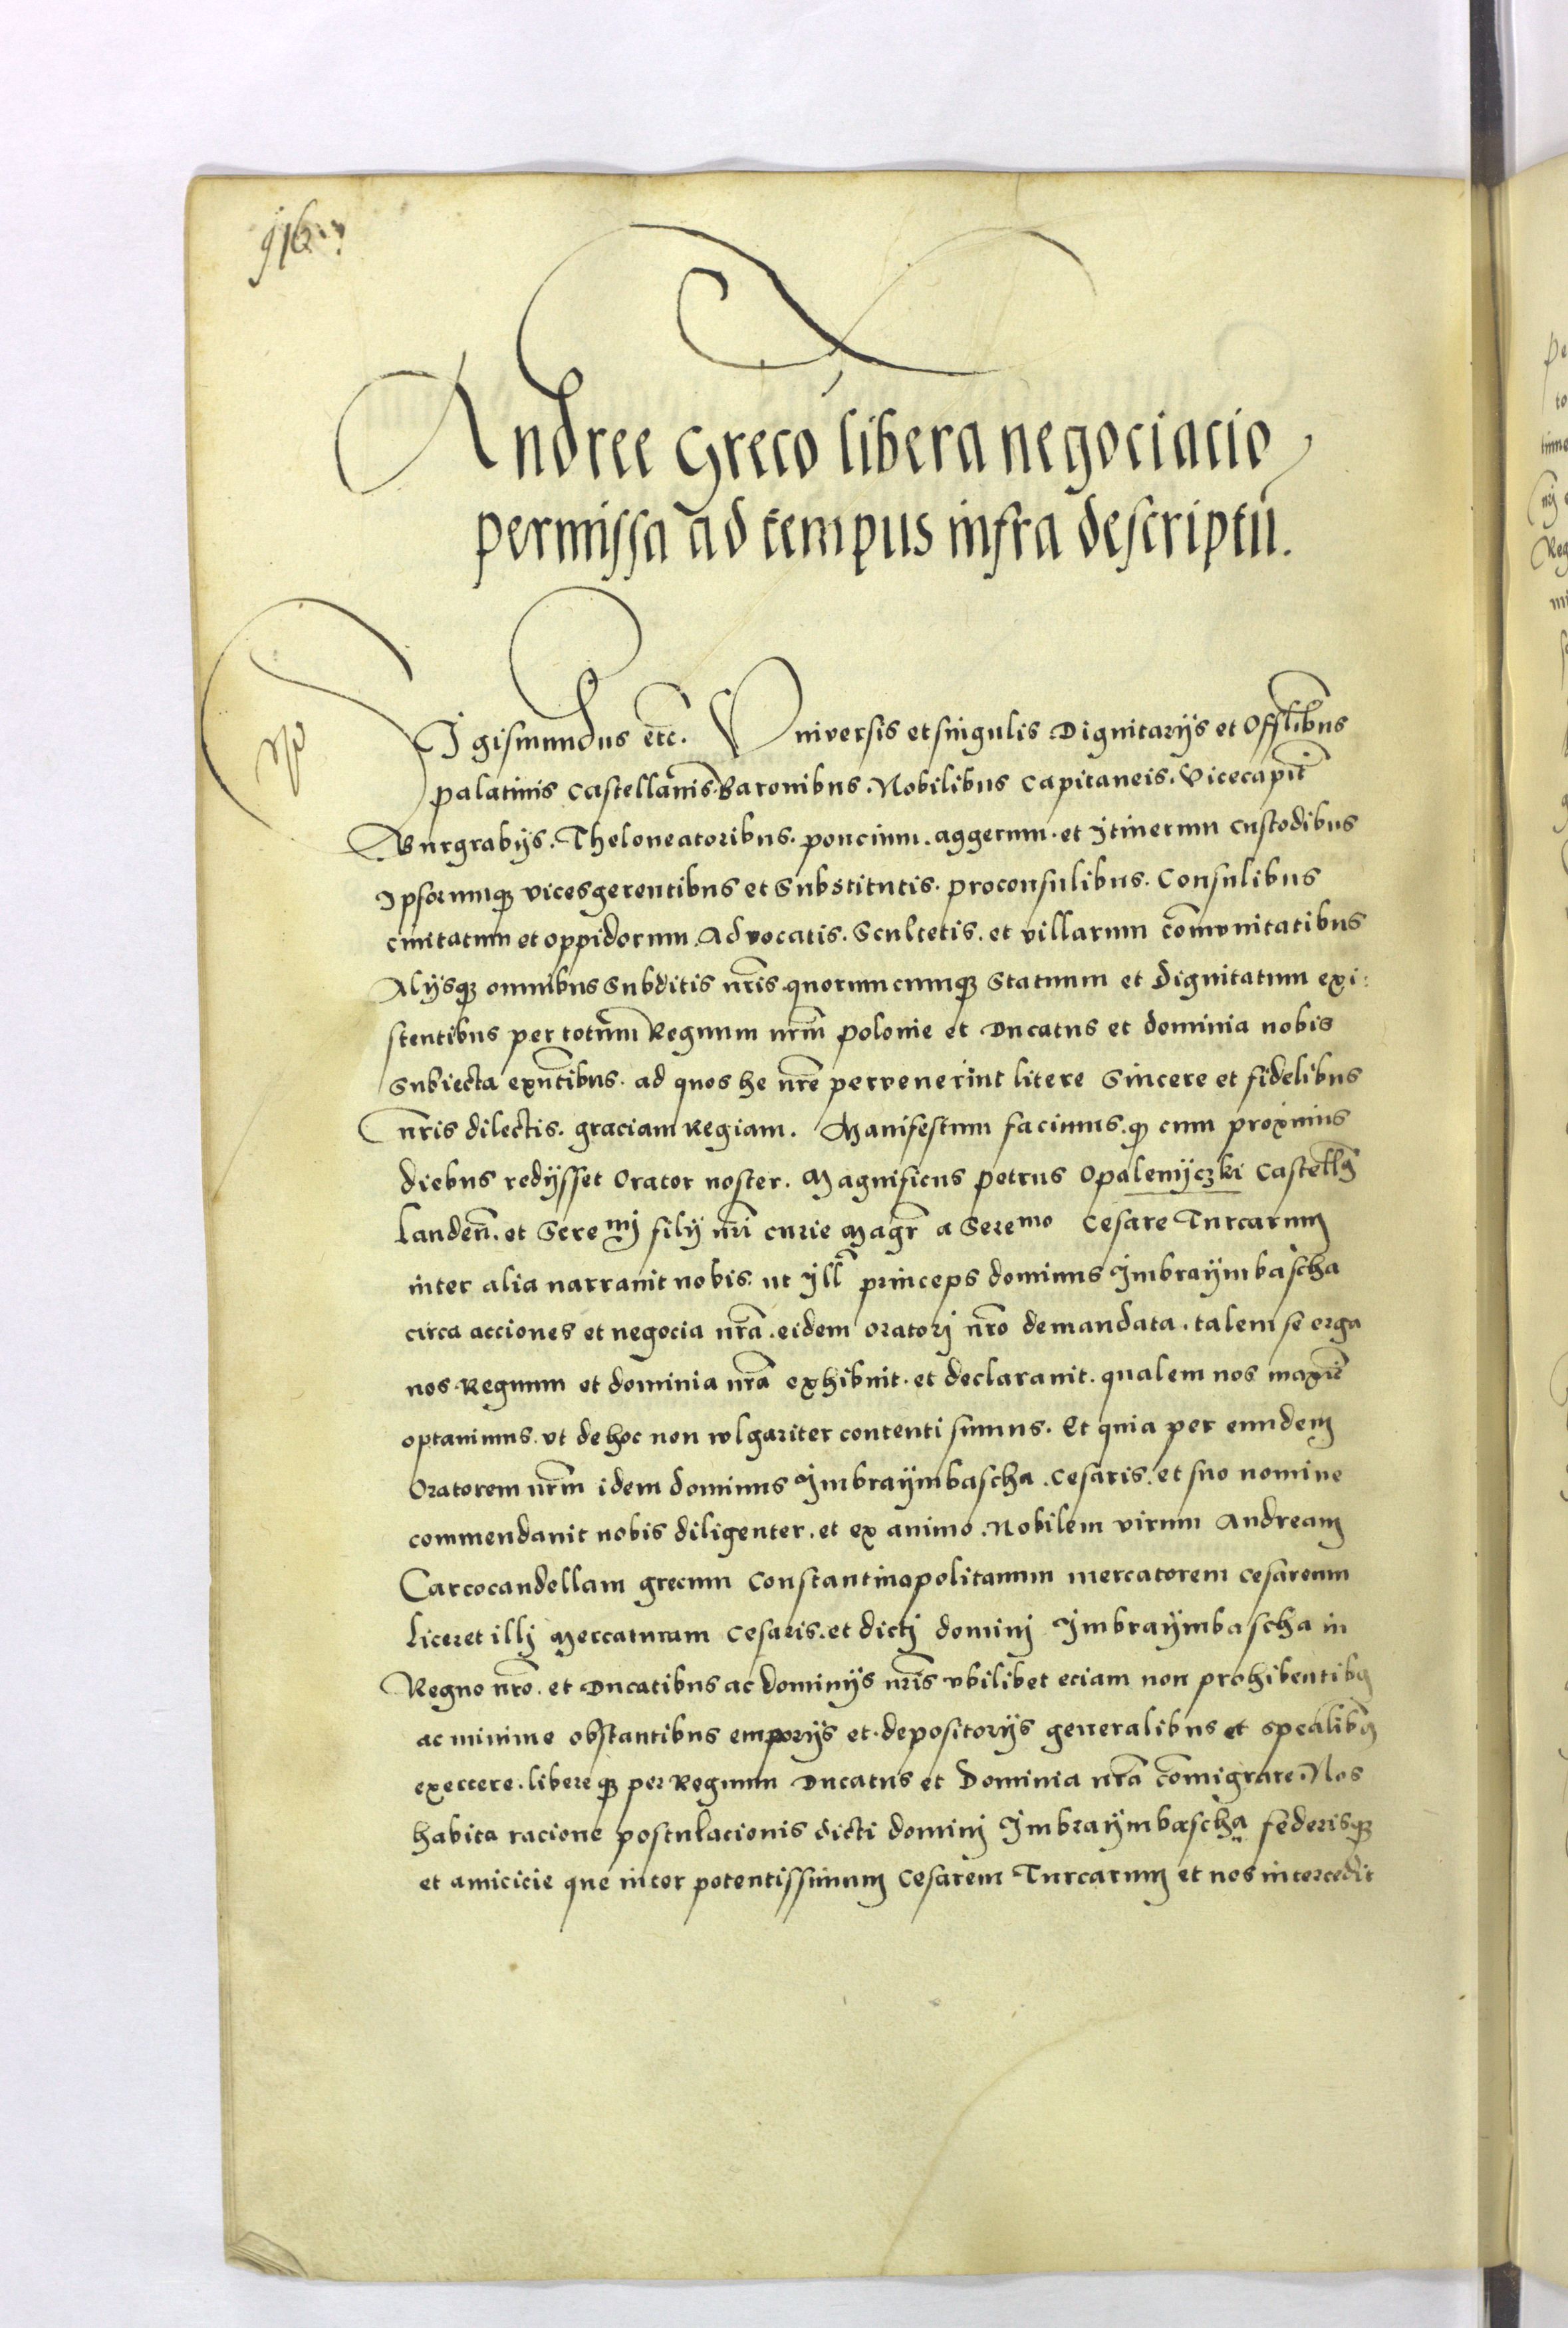 916
Andree Greco libera negociacio
permissa ad tempus infra descriptū.
Sigismundus etc̄. Universis et singulis Dignitarijs et Offłibus
palatinis castellanis Baronibus. Nobilibus Capitaneis. Vicecapit̄
Burgrabijs. Theloneatoribus. poncium. aggerum. et Itinerum custodibus
Ipsorumqꝫ vicesgerentibus et Substitutis. proconsulibus. Consulibus
civitatum et oppidorum. Advocatis. Scultetis. et villarum com̄vnitatibus
Alijsqꝫ omnibus Subditis nr̄is quorumcumqꝫ Statuum et Dignitatum exi:
stentibus per totum Regnum nrm̄ polonie et Ducatus et dominia nobis
Subiecta exn̄tibus. ad quos he nr̄e pervenerint litere Sincere et fidelibus
nr̄is dilectis. graciam Regiam. Manifestum facimus. qꝫ cum proximis
diebus redijsset Orator noster. Magnificus petrus Opalenijczki Castelln̄
Landen̄. et Seremi filij nr̄i curie Magr̄ a Seremo Cesare Turcarum
inter alia narravit nobis. ut Ill̄ princeps dominus Imbraijmbascha
circa acciones et negocia nr̄a. eidem oratorj nr̄o demandata. talem se erga
nos. Regnum et dominia nr̄a exhibuit. et declaravit. qualem nos maxīe
optavimus. vt de hoc non wlgariter contenti simus. Et quia per eundem
Oratorem nrm̄ idem dominus Imbraijmbascha. Cesaris. et suo nomine
commendavit nobis diligenter. et ex animo. Nobilem virum Andream
Carcocandellam grecum Constantinopolitanum mercatorem cesareum
liceret illj Mercaturam Cesaris. et dictj dominj Imbraijmbascha in
Regno nr̄o. et Ducatibus ac dominijs nr̄is vbilibet eciam non prohibentibꝫ
ac minime obstantibus emporijs et. depositorijs generalibus et spealibꝫ
exercere. libereqꝫ per Regnum Ducatus et Dominia nr̄a com̄igrare. Nos
habita racione postulacionis dicti dominj Imbraijmbascha federisqꝫ
et amicicie que inter potentissimum Cesarem Turcarum et nos intercedit